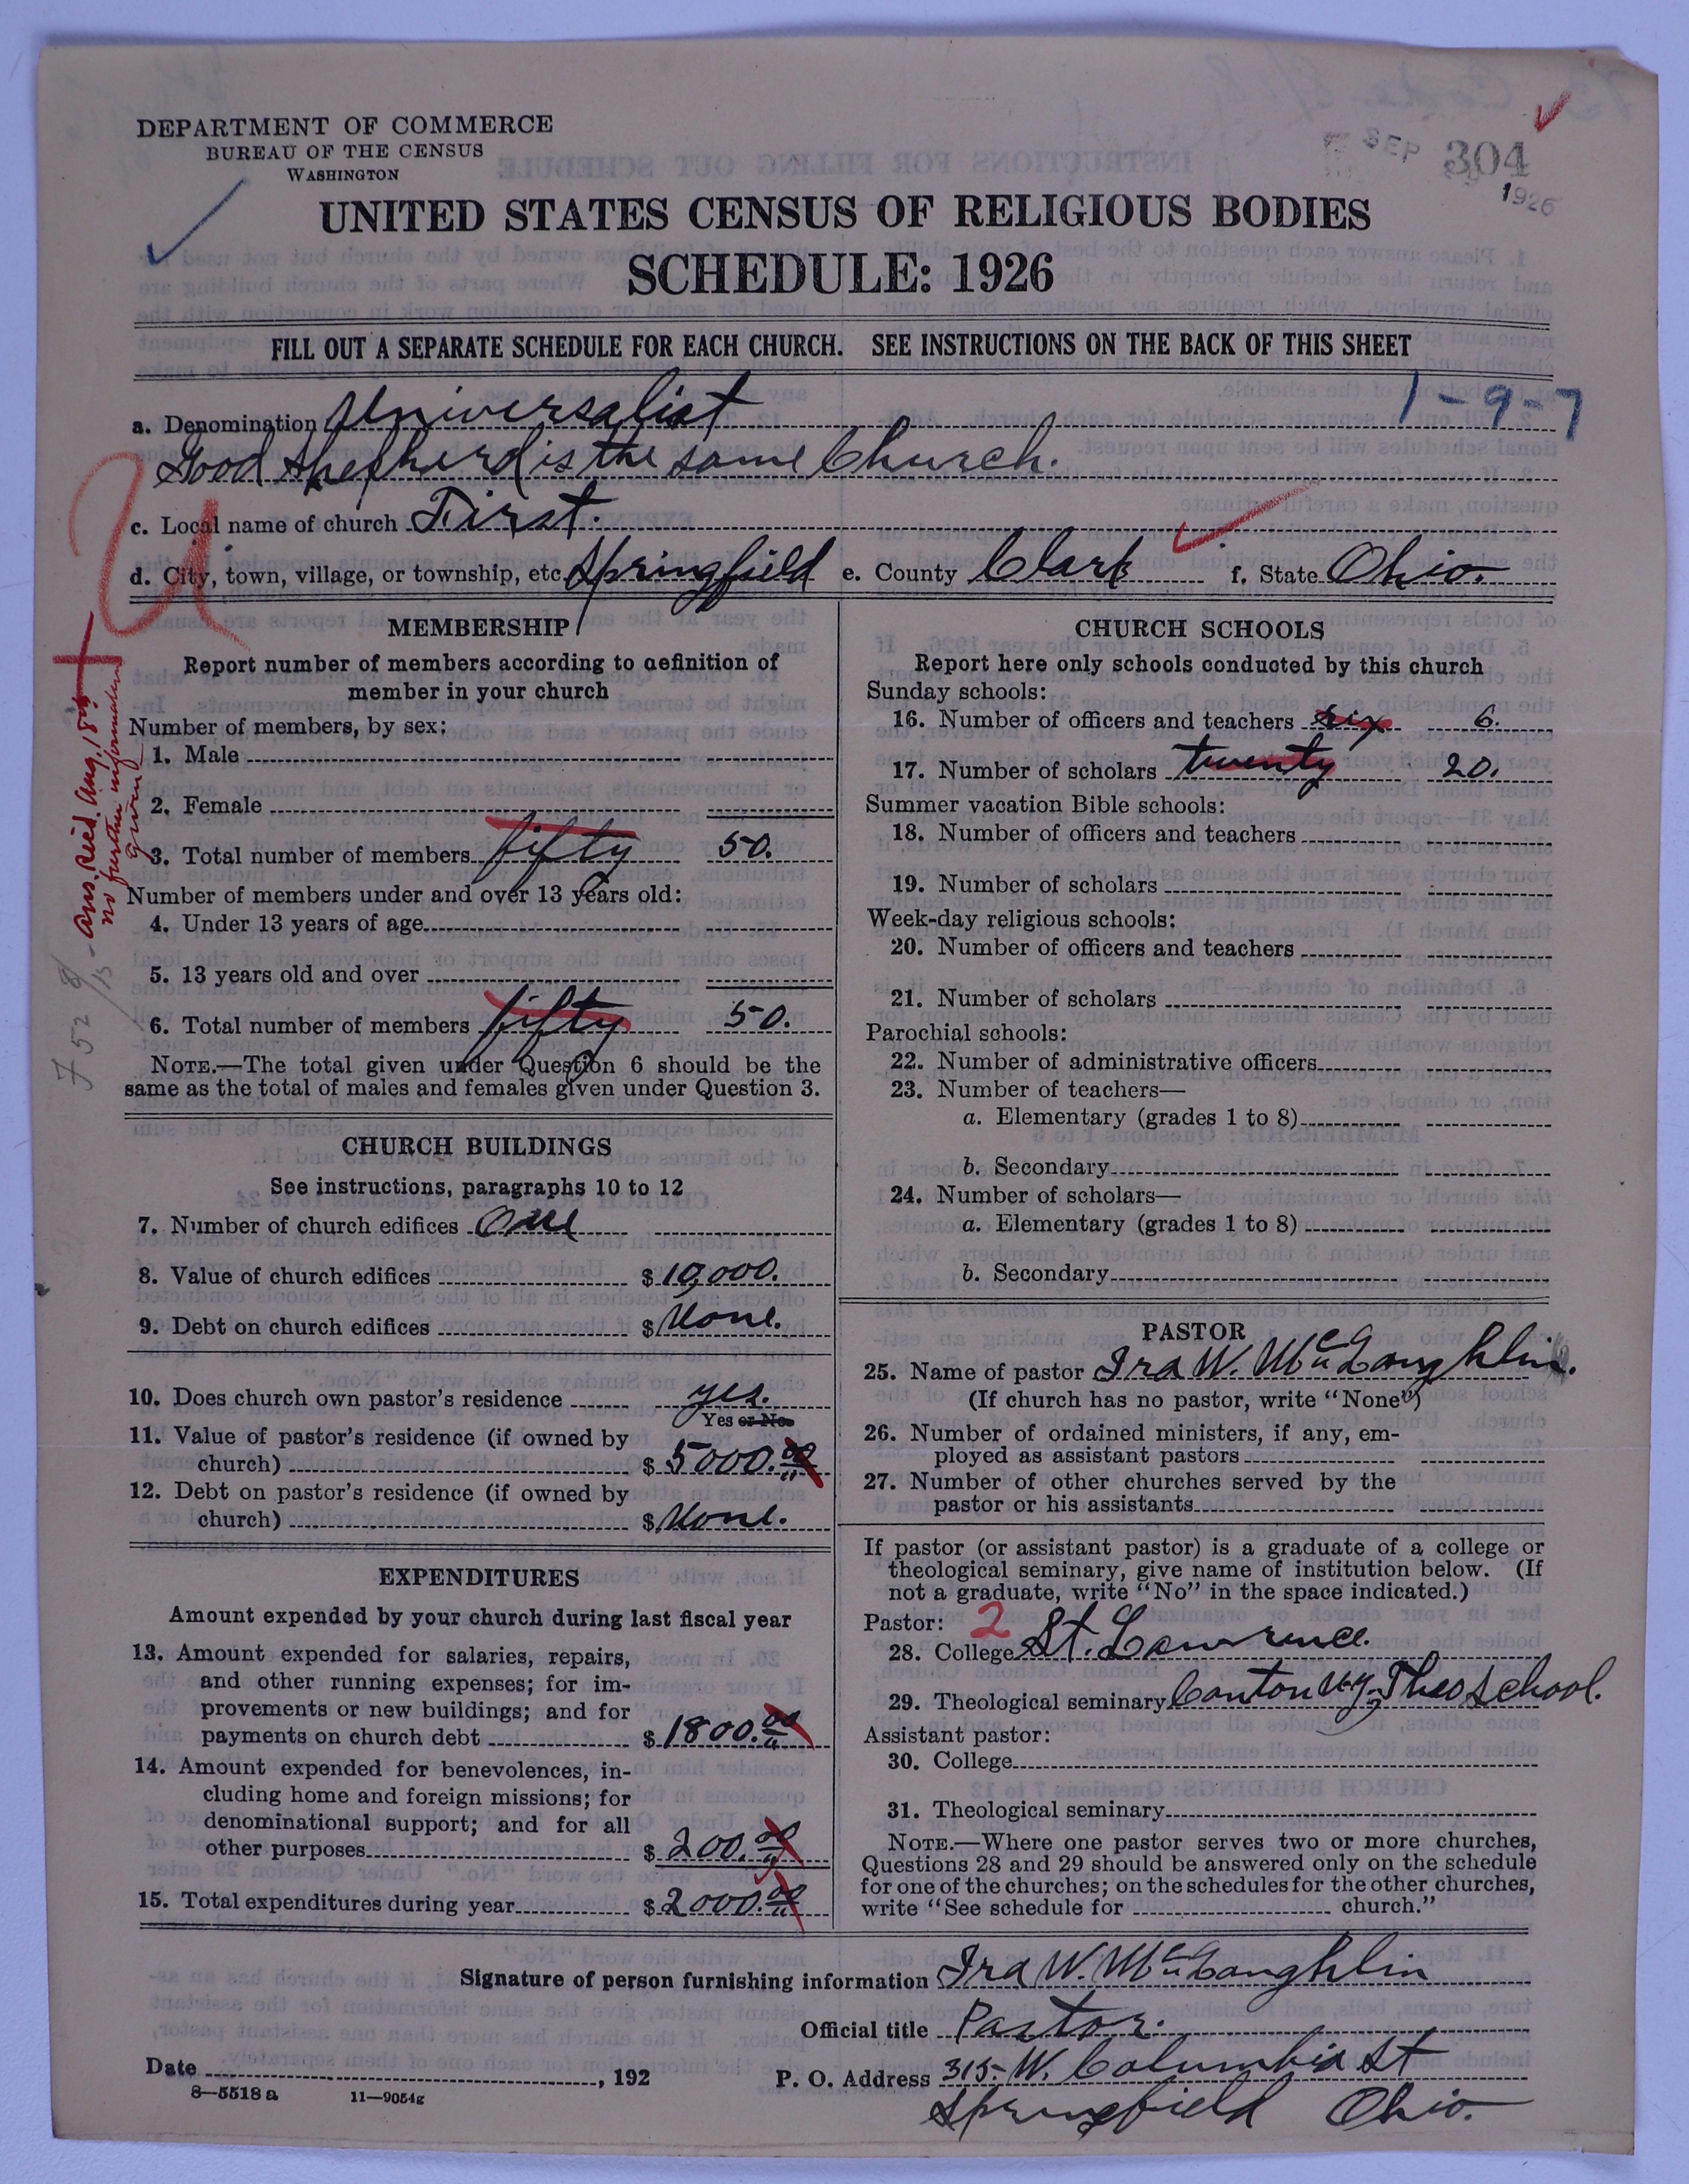 DEPARTMENT OF COMMERCE
BUREAU OF THE CENSUS
WASHINGTON
SEP 304
1926
UNITED STATES CENSUS OF RELIGIOUS BODIES
SCHEDULE: 1926
FILL OUT A SEPARATE SCHEDULE FOR EACH CHURCH. SEE INSTRUCTIONS ON THE BACK OF THIS SHEET
1-9-7
a. Denomination Universalist
Good Shepherd is the same Church.
c. Local name of church First.
d. City, town, village, or township, etc. Springfield e. County Clark f. State Ohio.
U
Ans. Recd. Aug. 18th
no further information
given
MEMBERSHIP
Report number of members according to definition of
member in your church
Number of members, by sex:
1. Male
2. Female
3. Total number of members fifty 50.
Number of members under and over 13 years old:
4. Under 13 years of age
5. 13 years old and over
6. Total number of members fifty 50.
NOTE.—The total given under Question 6 should be the
same as the total of males and females given under Question 3.
CHURCH BUILDINGS
See instructions, paragraphs 10 to 12
7. Number of church edifices One
8. Value of church edifices $ 10,000.
9. Debt on church edifices $ None.
10. Does church own pastor's residence yes.
Yes or No
11. Value of pastor's residence (if owned by
church) $ 5000.00
12. Debt on pastor's residence (if owned by
church) $ None.
EXPENDITURES
Amount expended by your church during last fiscal year
13. Amount expended for salaries, repairs,
and other running expenses; for im-
provements or new buildings; and for
payments on church debt $ 1800.00
14. Amount expended for benevolences, in-
cluding home and foreign missions; for
denominational support; and for all
other purposes $ 200.00
15. Total expenditures during year $ 2000.00
CHURCH SCHOOLS
Report here only schools conducted by this church
Sunday schools:
16. Number of officers and teachers six 6.
17. Number of scholars twenty 20.
Summer vacation Bible schools:
18. Number of officers and teachers
19. Number of scholars
Week-day religious schools:
20. Number of officers and teachers
21. Number of scholars
Parochial schools:
22. Number of administrative officers
23. Number of teachers—
a. Elementary (grades 1 to 8)
b. Secondary
24. Number of scholars—
a. Elementary (grades 1 to 8)
b. Secondary
PASTOR
25. Name of pastor Ira W. McLaughlin.
(If church has no pastor, write "None")
26. Number of ordained ministers, if any, em-
ployed as assistant pastors
27. Number of other churches served by the
pastor or his assistants
If pastor (or assistant pastor) is a graduate of a college or
theological seminary, give name of institution below. (If
not a graduate, write "No" in the space indicated.)
Pastor: 2
28. College St. Lawrence.
29. Theological seminary Canton N.Y. Theo School.
Assistant pastor:
30. College
31. Theological seminary
NOTE.—Where one pastor serves two or more churches,
Questions 28 and 29 should be answered only on the schedule
for one of the churches; on the schedules for the other churches,
write "See schedule for church."
Signature of person furnishing information Ira W. McLaughlin
Official title Pastor.
Date , 192
P. O. Address 315 W. Columbia St
Springfield Ohio.
8—5518 a 11—9054g